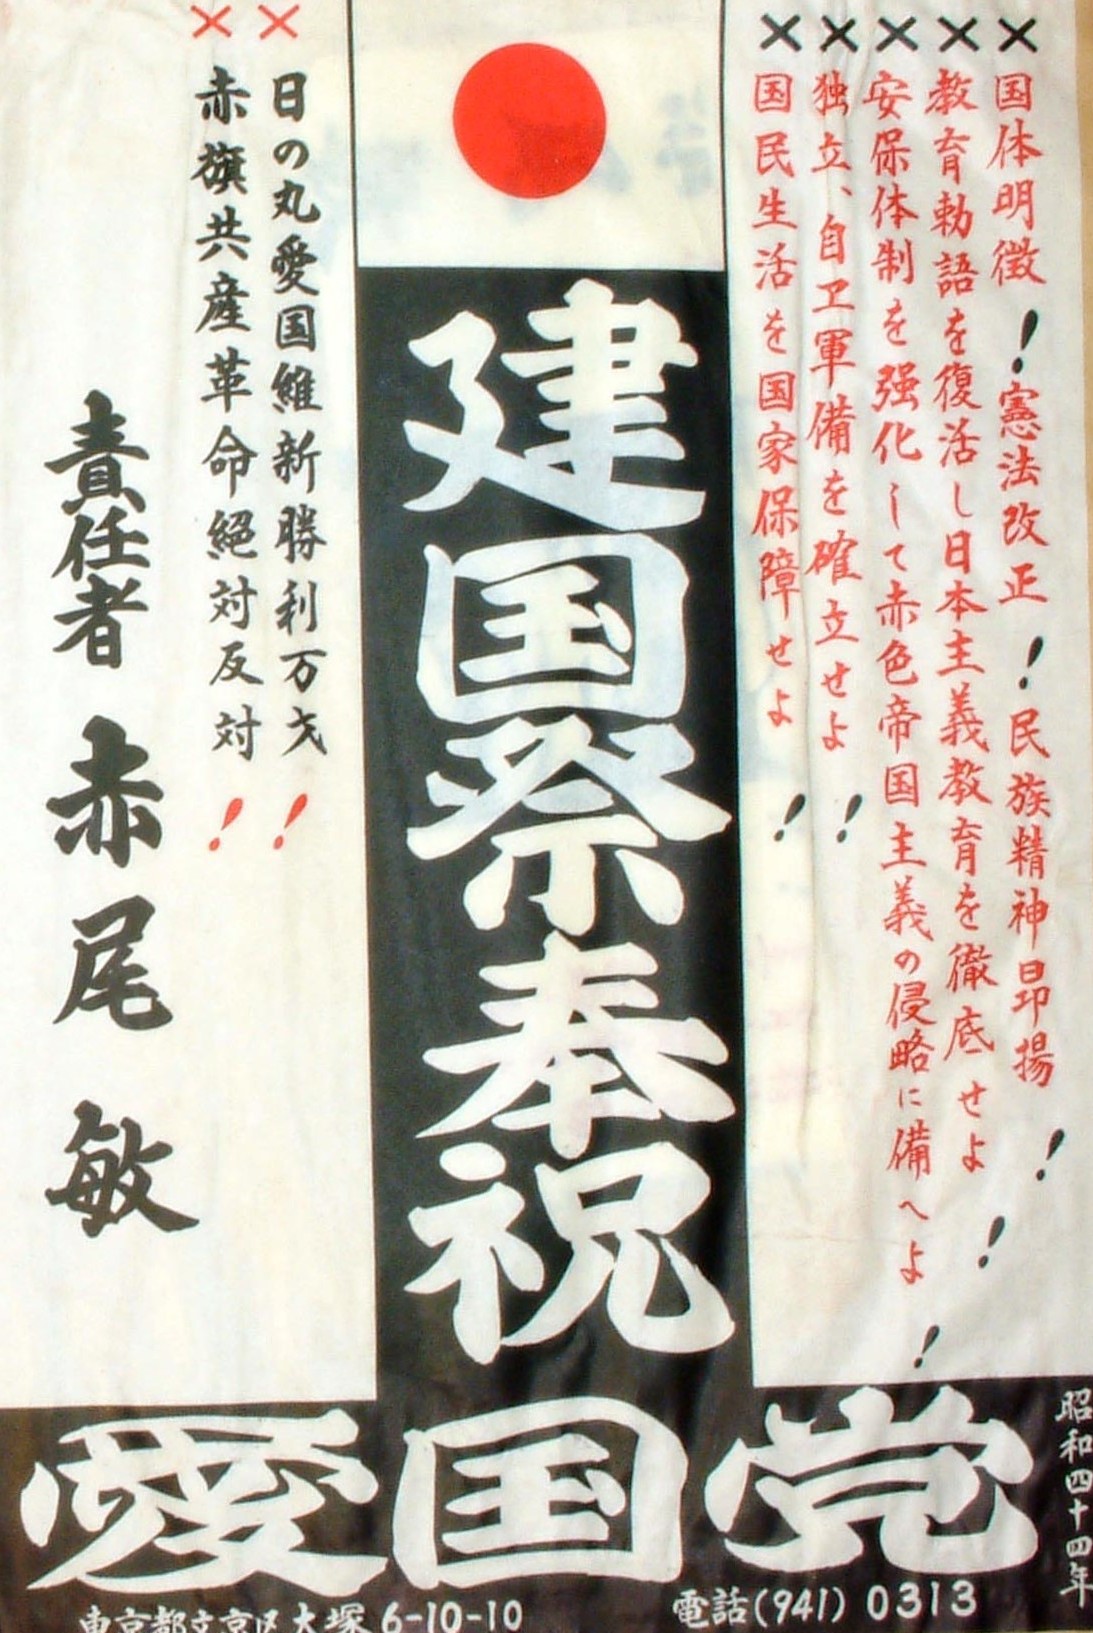 国体明徴!憲法改正!民族精神昻揚!
教育勅語を復活し日本主義教育を徹底せよ!
安保体制を强化して赤色帝国主義の侵略に備へよ!
独立、自卫軍備を確立せよ!
国民生活を国家保障せよ!
建国祭奉祝
日の丸愛国維新勝利万才!
赤旗共産革命絕対反対!
責任者 赤尾敏
愛国党
昭和四十四年
東京都文京区大塚6-10-10
電話(941)0313